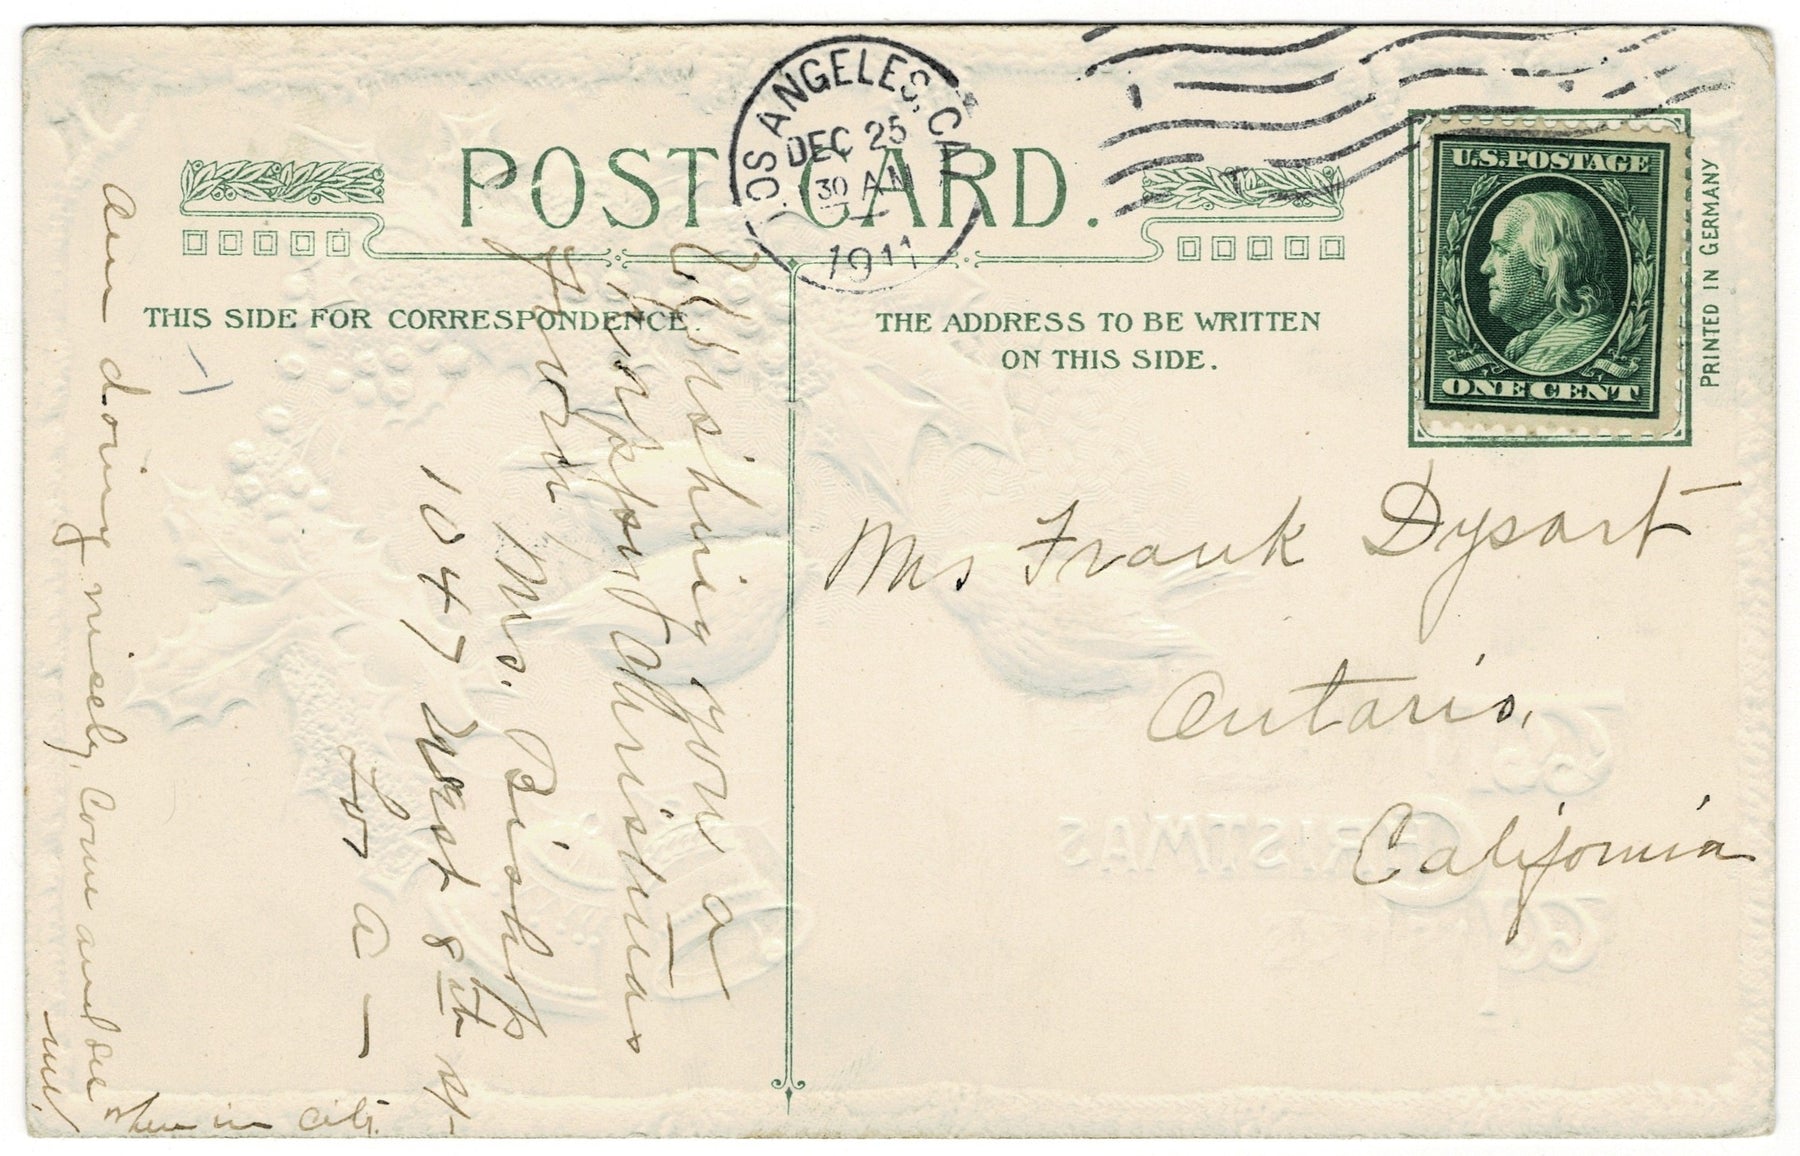 POST CARD.
LOS ANGELES, CAL
DEC 25
30 AM
1911
U.S. POSTAGE
ONE CENT
PRINTED IN GERMANY
THIS SIDE FOR CORRESPONDENCE.
THE ADDRESS TO BE WRITTEN
ON THIS SIDE.
Wishing you a
Christmas
from
Mrs. Bishop
1047 West 8th St
Los A—
Am doing nicely, Come and see
me!
when in city.
Mrs Frank Dysart
Ontario,
California
CHRISTMAS